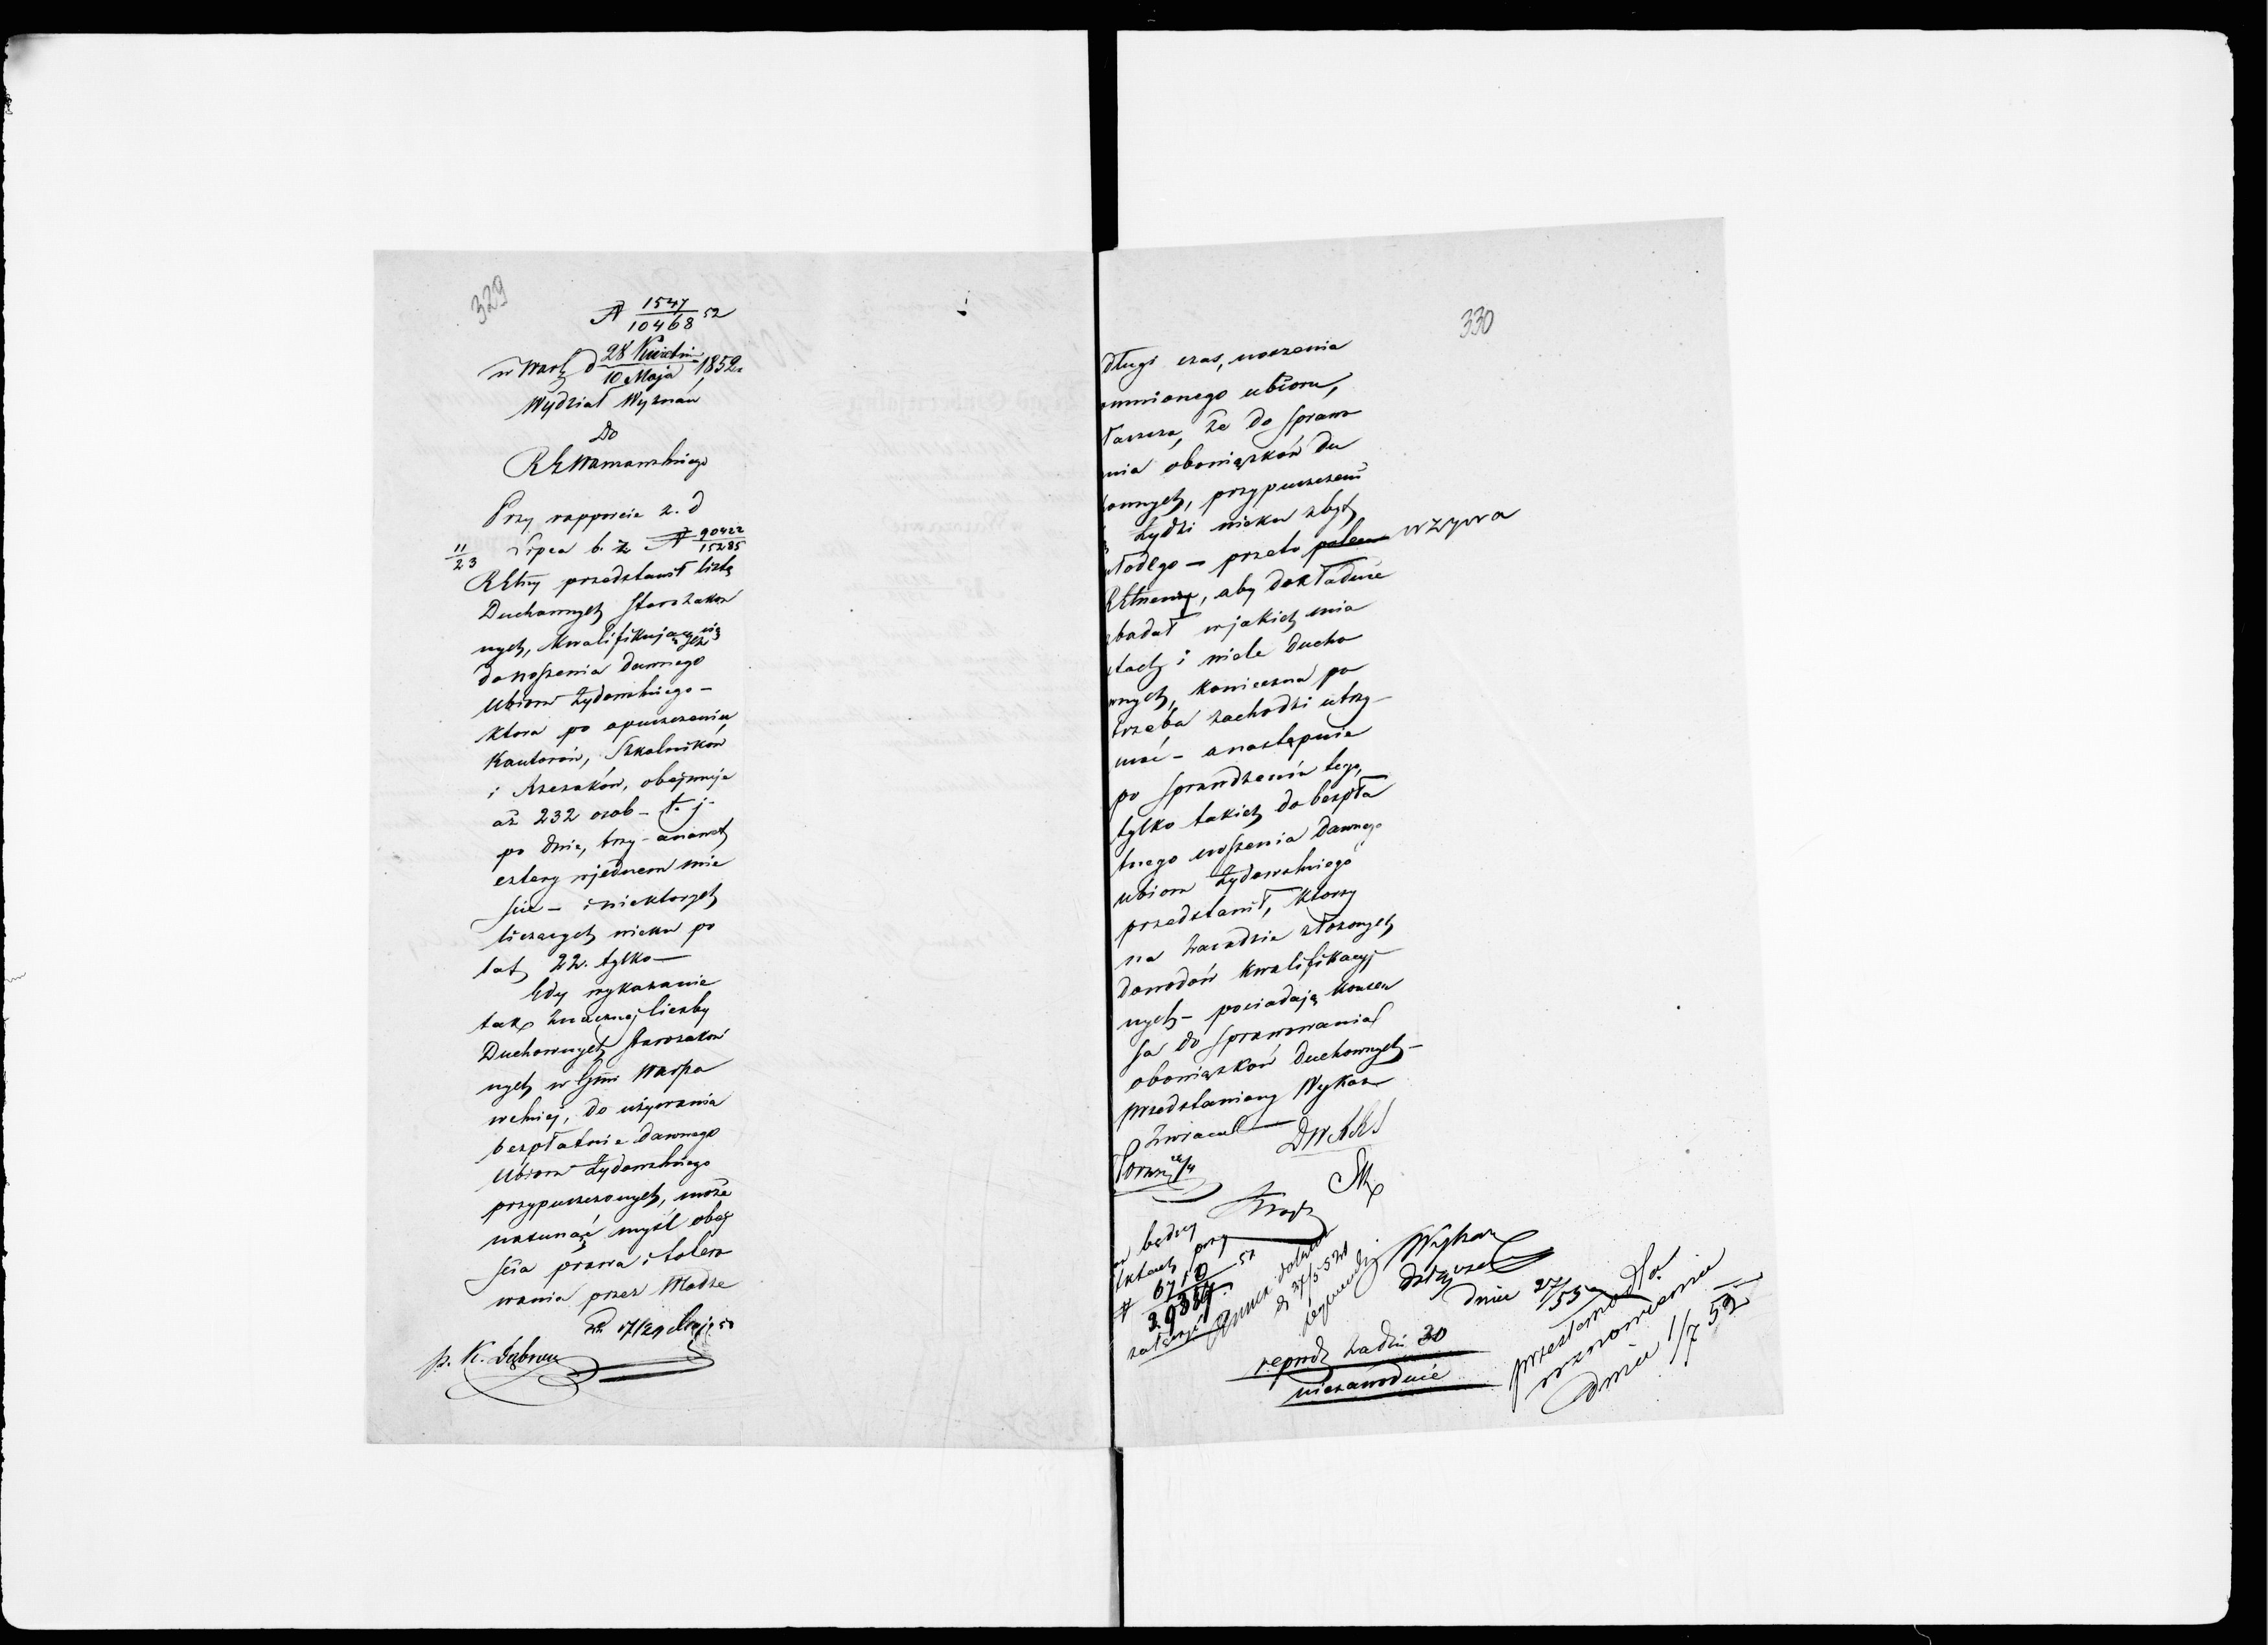 329
N 1547/10468 52
w Warsz d 28 Kwietnia/10 Maja 1852
Wydział Wyznań
Do
RG Warszawskiego
Przy rapporcie z d
11/23 Lipca b. r. N 90422/15285
RGlny przedstawił listę
Duchownych Starozakon
nych, kwalifikujących się
do noszenia dawnego
Ubioru Żydowskiego –
która po opuszczeniu
Kantorów, Szkolników
i Rzezaków, obejmuje
aż 232 osob – t. j.
po dwie, trzy – a nawet
cztery w jednem mie
ście – i niektórych
liczących wieku po
lat 22. tylko –
Gdy wykazanie
tak znacznej liczby
Duchownych Starozakon
nych w Gnii Warsza
wskiej, do używania
bezpłatnie dawnego
Ubioru Żydowskiego
przypuszczonych, może
nasunąć myśl obej
ścia prawa i tolero
wania przez Władze
17/29 Maja 52
p. K. Dąbrow
330
długi czas, noszenia
omnionego ubioru,
łaszcza, że do spraw
nia obowiązków du
ownych, przypuszczeni
Żydzi wieku zbyt
młodego – przeto poleca wzywa
RGlnemu, aby dokładnie
zbadał w jakich mia
stach i wiele ducho
wnych, konieczna po
trzeba zachodzi utrzy –
mać – a następnie
po sprawdzeniu tego,
tylko takich do bezpła
tnego noszenia dawnego
ubioru Żydowskiego
przedstawił, którzy
na zasadzie złożonych
dowodów kwalifikacyj
nych – posiadają konsen
sa do sprawowania
obowiązków duchownych –
przedstawiony Wykaz
zwraca –
będący
aktach przy
N 6710/29384 52
załączyć
Wykaz
dołącza
dnia 27/5 52
reprod za dni 30
niezawodnie
przesłano do
wznowienia
dnia 1/7 52